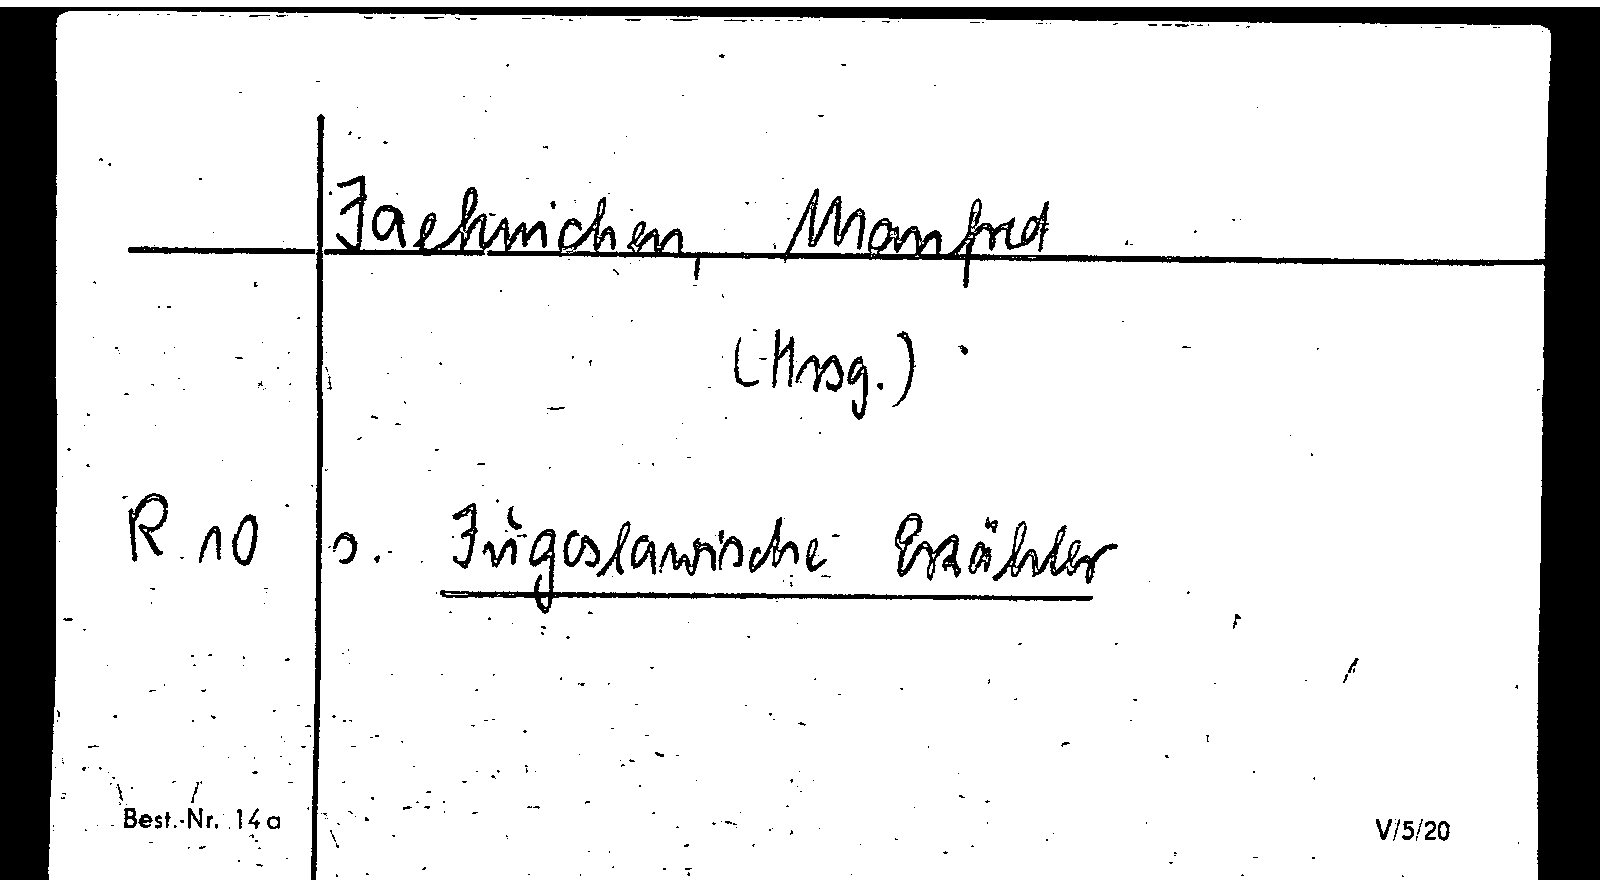 Jaehnichen, Manfred
(Hrsg.)
R 10 s. Jugoslawische Erzähler
Best.-Nr. 14a V/5/20